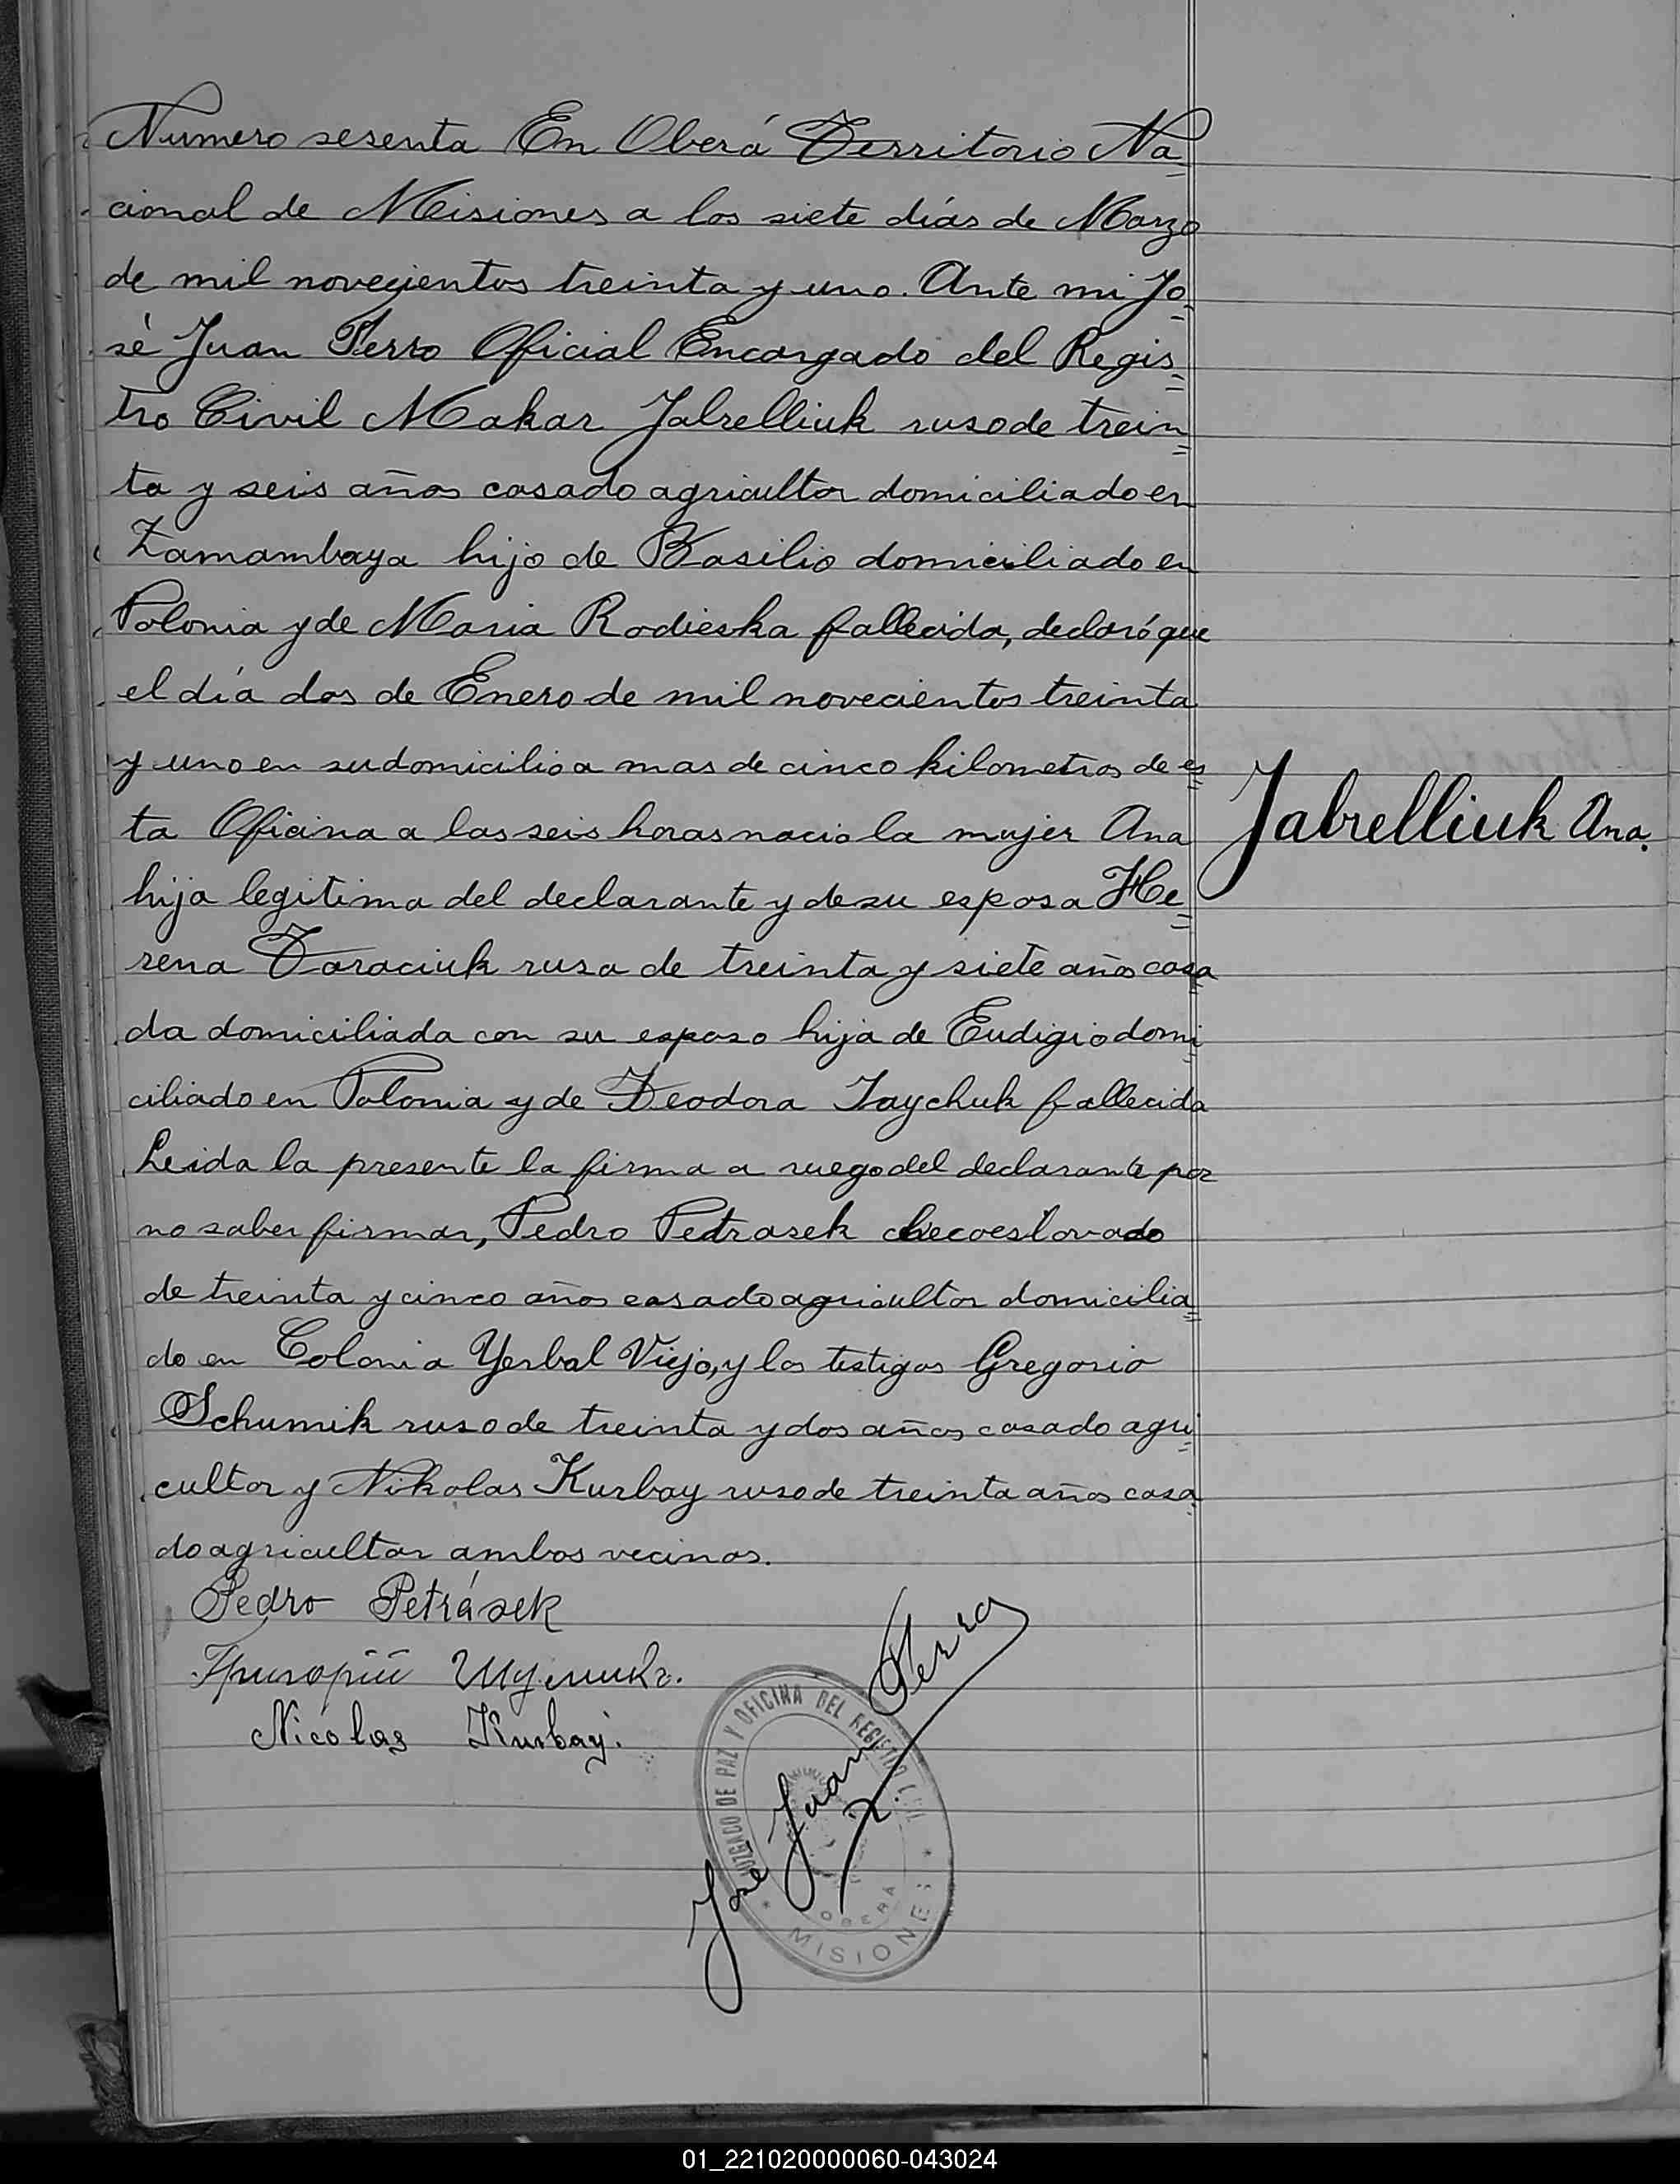 Numero sesenta En Oberá Territorio Na=
cional de Misiones a los siete días de Marzo
de mil novecientos treinta y uno. Ante mi Jo=
sé Juan Perro Oficial Encargado del Regis=
tro Civil Makar Jabrelliuk ruso de trein=
ta y seis años casado agricultor domiciliado en
Zamambaya hijo de Basilio domiciliado en
Polonia y de Maria Radieska fallecida, declaró que
el día dos de Enero de mil novecientos treinta
y uno en su domicilio a mas de cinco kilometros de es=
ta Oficina a las seis horas nacio la mujer Ana
Jabrelliuk Ana.
hija legitima del declarante y de su esposa He=
rena Taraciuk rusa de treinta y siete años casa=
da domiciliada con su esposo hija de Eudigio domi=
ciliado en Polonia y de Teodora Iaychuk fallecida
Leida la presente la firma a ruego del declarante por
no saber firmar, Pedro Petrasek checoeslovado
de treinta y cinco años casado agricultor domicilia=
do en Colonia Yerbal Viejo, y los testigos Gregorio
Schumik ruso de treinta y dos años casado agri=
cultor y Nikolas Kurbay ruso de treinta años casa=
do agricultor ambos vecinos.
Pedro Petrásek
Григорій Шумикъ.
Nicolas Kurbay.
José Juan Perro
JUZGADO DE PAZ Y OFICINA DEL REGISTRO CIVIL
OBERÁ
* MISIONES *
01_221020000060-043024